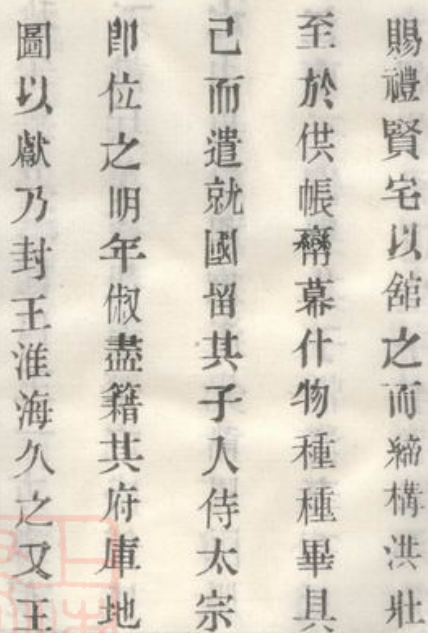 賜禮賢宅以舘之而締構洪壯
至於供帳帟幕什物種種畢具
己而遣就國留其子入侍太宗
卽位之明年俶盡籍其府庫地
圖以獻乃封王淮海久之又王